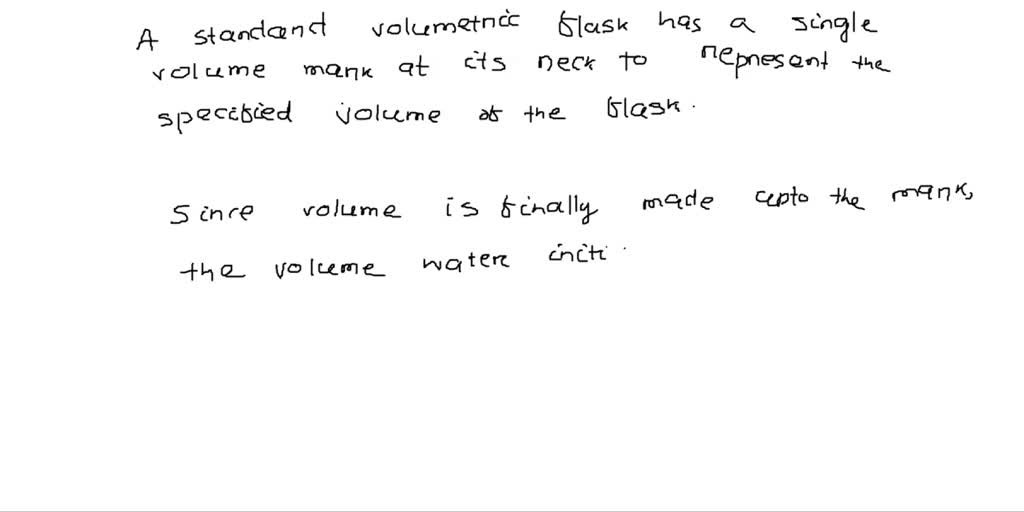 A standard volumetric flask has a single
volume mark at its neck to represent the
specified volume of the flask.
Since volume is finally made upto the mark,
the volume water initi